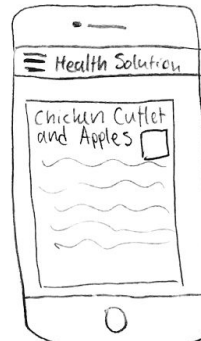 Health Solution
Chicken Cutlet
and Apples